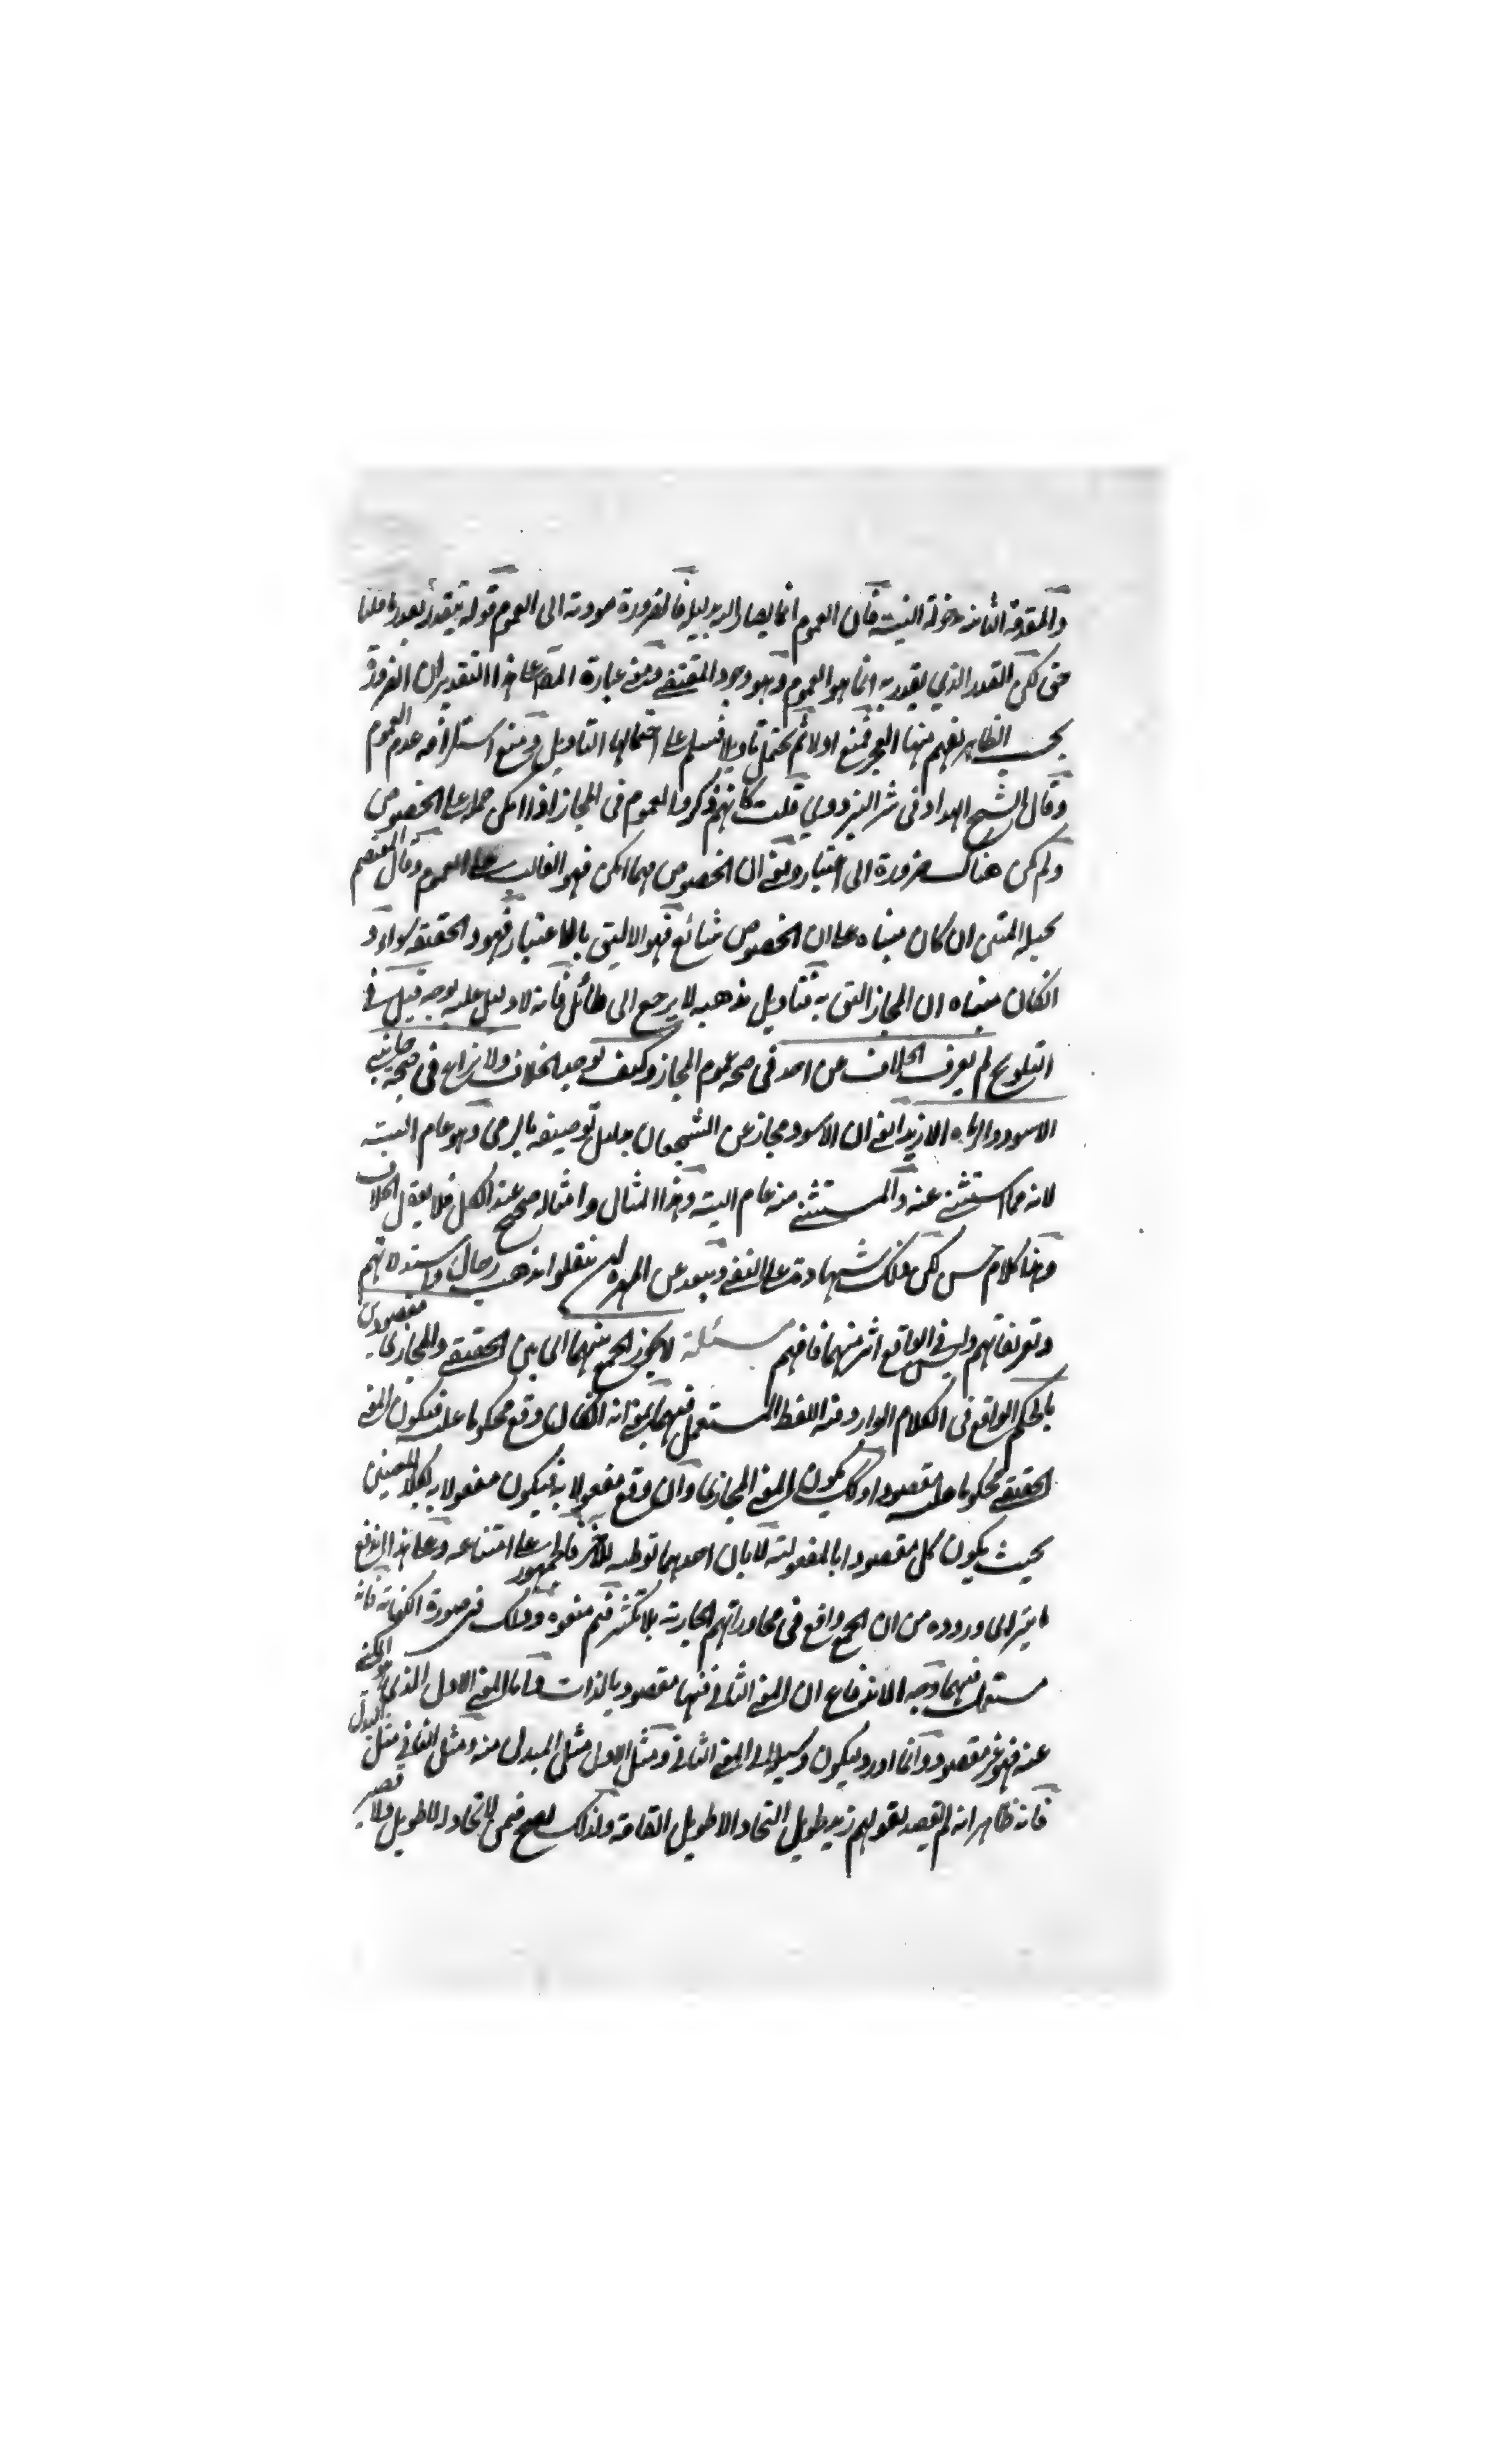 والمقدمة الثانية مدخولة البتة فان العموم انما يصار اليه بدليل فالضرورة مودته الى العموم قوله يتقدر بقدرها قلنا
حتى لكن القدر الذي يقدر به انما هو العموم وهو وجود المقتضى ومعنى عبارة المص على هذا التقدير ان الضرورة
بحسب الظاهر يفهم منها العجز فمنع اولا ثم يحتمل تاويلا فيسلم على احتمالها التاويل ويمنع استلزامه عدم العموم
وقال الشيخ الهداد في شرح البزدوي قلت كانهم ذكروا العموم في المجاز اذا امكن حمله على الخصوص
ولم يكن هناك ضرورة الى اعتباره يعني ان الخصوص مهما امكن فهو الغالب على العموم وقال المعتصم
بحبل المتين ان كان مبناه على ان الخصوص شائع فهو الاليق بالاعتبار فهو والحقيقة سواء و
انكان مبناه ان المجاز التي به تتاويل مذهبه لا يرجع الى طائل فانه لا دليل عليه بوجه قيل في
التلويح لم يعرف الخلاف عن احد في صحة عموم المجاز وكيف يوجه الخلاف ولا نزاع في صحة جاءني
الاسود الرماة الا زيدا يعني ان الاسود مجاز عن الشجعان بدليل توصيفه بالرمي وهو عام البتة
لانه مما استثنى عنه والمستثنى منه عام البتة وهذا المثال وامثاله صحيح عند الكل فلا يعقل الخلاف
وهذا كلام حسن لكن ذلك شهادة على النفي ويبعد عن المهرة ان ينقلوا مذهب رجال واستدلالهم
وتعريفاتهم وليس في الواقع اثر منهما فافهم مسئلة لا يجوز الجمع بينهما اي بين الحقيقي والمجازي مقصودين
بالحكم الواقع في الكلام الوارد فيه اللفظ المستعمل فيهما بمعنى انه انكان وقع محكوما عليه فيكون المعنى
الحقيقي محكوما عليه مقصودا وكذلك يكون المعنى المجازي وان وقع مفعولا به فيكون مفعولا به لكلا المعنيين
بحيث يكون كل مقصودا بالمفعولية لا بان احدهما توطية للاخر فالجمهور على امتناعه وعلى هذا اندفع
ما يترائى وروده من ان الجمع واقع في محاوراتهم الجارية بلا نكير فيم منعوه وذلك في صورة الكناية فانه
مستعمل فيهما ووجه الاندفاع ان المعنى الثاني فيها مقصود بالذات واما المعنى الاول الذي هو المكنى
عنه فهو غير مقصود وانما اورد ليكون وسيلة الى المعنى الثاني ومثل الاول مثل المبدل منه ومثل الثاني مثل البدل
فانه ظاهر انه لم يقصد بقولهم زيد طويل النجاد الا طويل القامة ولذلك يصح فيمن لا نجاد له لا طويل ولا قصير